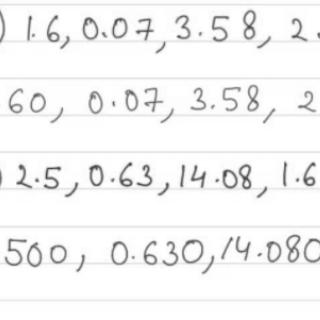 ) 1.6, 0.07, 3.58, 2.
60, 0.07, 3.58, 2
) 2.5, 0.63, 14.08, 1.6
500, 0.630, 14.080